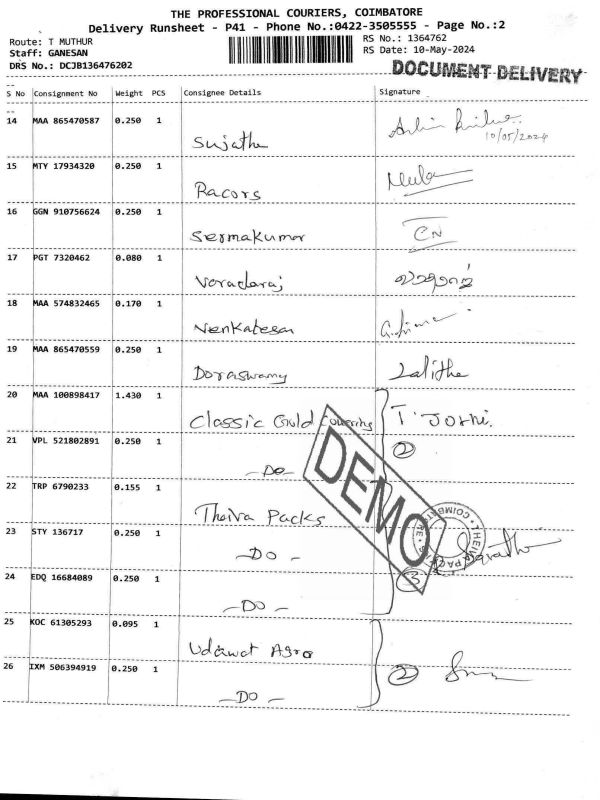 THE PROFESSIONAL COURIERS, COIMBATORE
Delivery Runsheet - P41 - Phone No.:0422-3505555 - Page No.:2
Route: T MUTHUR
RS No.: 1364762
Staff: GANESAN
RS Date: 10-May-2024
DRS No.: DCJB136476202
DOCUMENT DELIVERY
S No Consignment No Weight PCS Consignee Details Signature
14 MAA 865470587 0.250 1 Sujatha
10/05/2024
15 MTY 17934320 0.250 1 Racors
16 GGN 910756624 0.250 1 Sermakumar CN
17 PGT 7320462 0.080 1 Voradaraj
18 MAA 574832465 0.170 1 Venkatesan
19 MAA 865470559 0.250 1 Doraswamy Lalitha
20 MAA 100898417 1.430 1 Classic Gold Covering T. Joshi.
21 VPL 521802891 0.250 1 - Do - 2
22 TRP 6790233 0.155 1 Theiva Packs
DEMO
23 STY 136717 0.250 1 - DO -
THEIVA PACK
COIMBATORE
24 EDQ 16684089 0.250 1 - DO - 3
25 KOC 61305293 0.095 1 Udawat Agro
26 IXM 506394919 0.250 1 - DO - 2